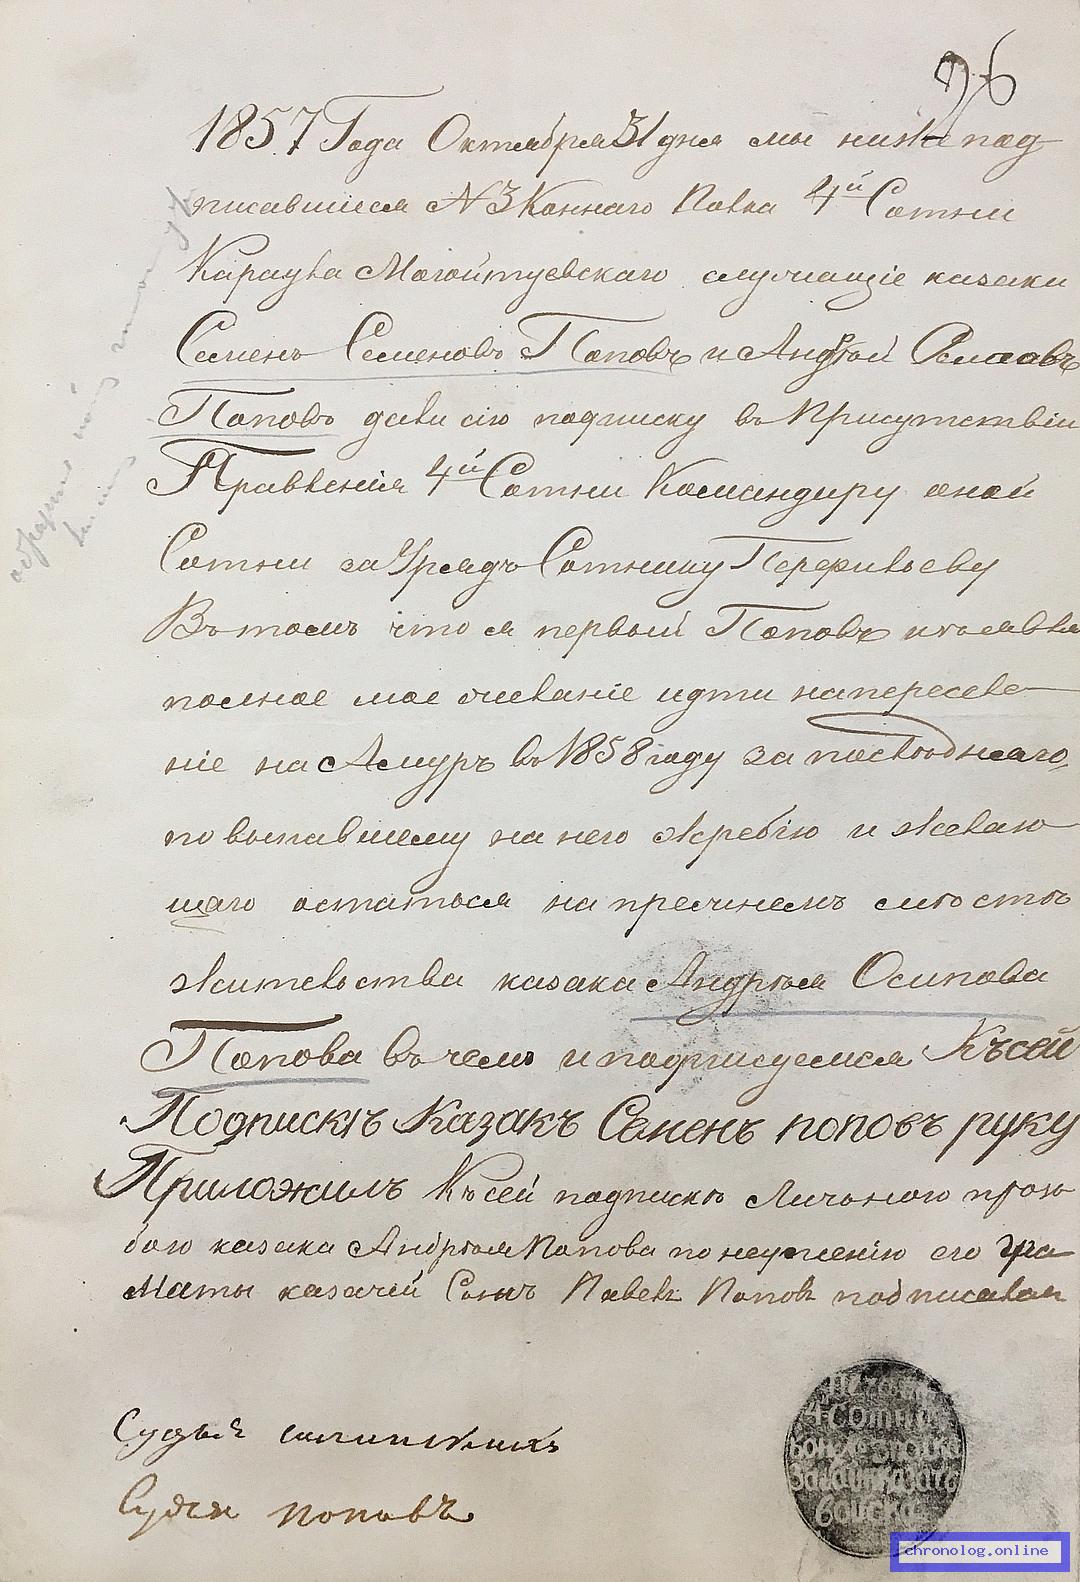 96
1857 Года Октября 31 дня мы ниже под
писавшиеся № 3 Коннаго Полка 4й Сотни
Караула Могойтуевскаго служащіе казаки
Семенъ Семеновъ Поповъ и Андрей Осиповъ
Поповъ дали сію подписку въ Присутствіи
Правленія 4й Сотни Командиру оной
Сотни за Урядъ Сотнику Перфильеву
Въ томъ что я первый Поповъ изъявля
полное мое желаніе идти на переселе
ніе на Амуръ въ 1858 году за послѣдняго,
по выпавшему на него жребію и желаю
щаго остаться на прежнемъ мѣстѣ
жительства казака Андрѣя Осипова
Попова въ чемъ и подписуемся Къ сей
Подпискѣ Казакъ Семенъ поповъ руку
Приложилъ Къ сей подпискѣ Личною прозь
бою казака Андрѣя Попова по неумѣнію его гра
Маты казачій Сынъ Павелъ Поповъ подписалъ
Судья
Судья поповъ
Печать
4 Сотни
войска
chronolog.online